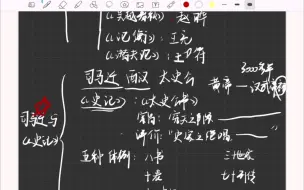 《吴越春秋》 赵晔
《论衡》：王充
《潜夫论》：王符
司马迁 西汉 太史公
3000多年
黄帝——汉武帝
司马迁与
《史记》
《史记》：《太史公书》
评价："史家之绝唱
五种体例：八书
三十世家
十表
七十列传